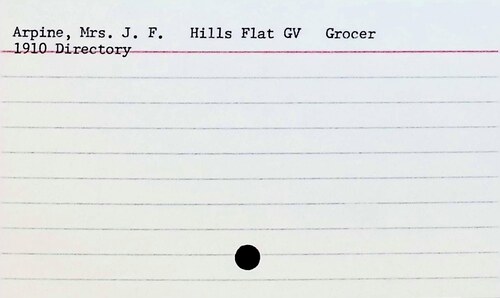 Arpine, Mrs. J. F.   Hills Flat GV   Grocer
1910 Directory